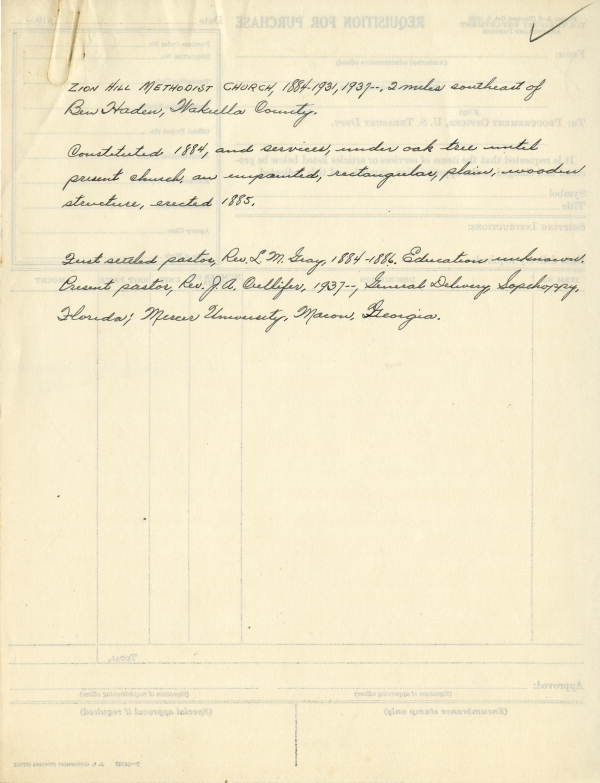 ZION HILL METHODIST CHURCH, 1884-1931, 1937--, 2 miles southeast of
Ben Haden, Wakulla County.
Constituted 1884, and services, under oak tree until
present church, an unpainted, rectangular, plain, wooden
structure, erected 1885.
First settled pastor, Rev. L. M. Gray, 1884-1886. Education unknown.
Present pastor, Rev. J. A. Cullifer, 1937--, General Delivery, Sopchoppy,
Florida; Mercer University, Macon, Georgia.
REQUISITION FOR PURCHASE
Date
TO: PROCUREMENT OFFICER, U. S. TREASURY DEPT.
It is requested that the items of services or articles listed below be
Symbol
Title
SHIPPING INSTRUCTIONS:
TOTAL,
Approved:
(Signature of approving officer)
(Signature of requisitioning officer)
(Encumbrance stamp only)
(Special approval if required)